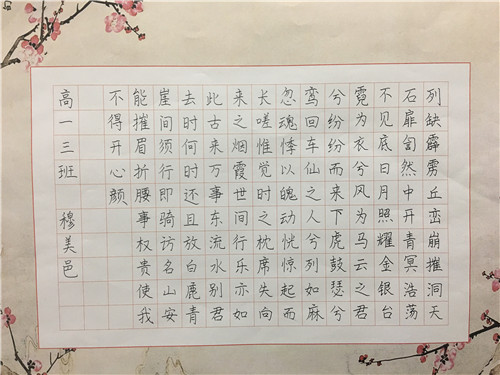 列缺霹雳丘峦崩摧洞天
石扉訇然中开青冥浩荡
不见底日月照耀金银台
霓为衣兮风为马云之君
兮纷纷而来下虎鼓瑟兮
鸾回车仙之人兮列如麻
忽魂悸以魄动恍惊起而
长嗟惟觉时之枕席失向
来之烟霞世间行乐亦如
此古来万事东流水别君
去时何时还且放白鹿青
崖间须行即骑访名山安
能摧眉折腰事权贵使我
不得开心颜
高一三班 穆美邑